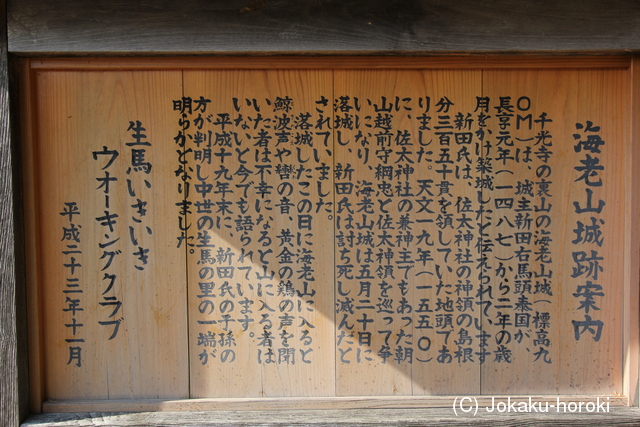 海老山城跡案内
千光寺の裏山の海老山城(標高九
〇M)は、城主新田右馬頭泰国が、
長享元年(一四八七)から二年の歳
月をかけ築城したと伝えられています
新田氏は、佐太神社の神領の島根
分三百五十貫を領していた地頭であ
りました。天文一九年(一五五〇)
に、佐太神社の兼神主でもあった朝
山越前守綱忠と佐太神領を巡って争
いになり、海老山城は五月二十日に
落城し、新田氏は討ち死し滅んだと
されていました。
落城したこの日に海老山に入ると
鯨波声や轡の音、黄金の鶏の声を聞
いた者は不幸になると山に入る者は
いないと今でも語られています。
平成十九年末に、新田氏の子孫の
方が判明し中世の生馬の里の一端が
明らかとなりました。
生馬いきいき
ウオーキングクラブ
平成二十三年十一月
(C) Jokaku-horoki